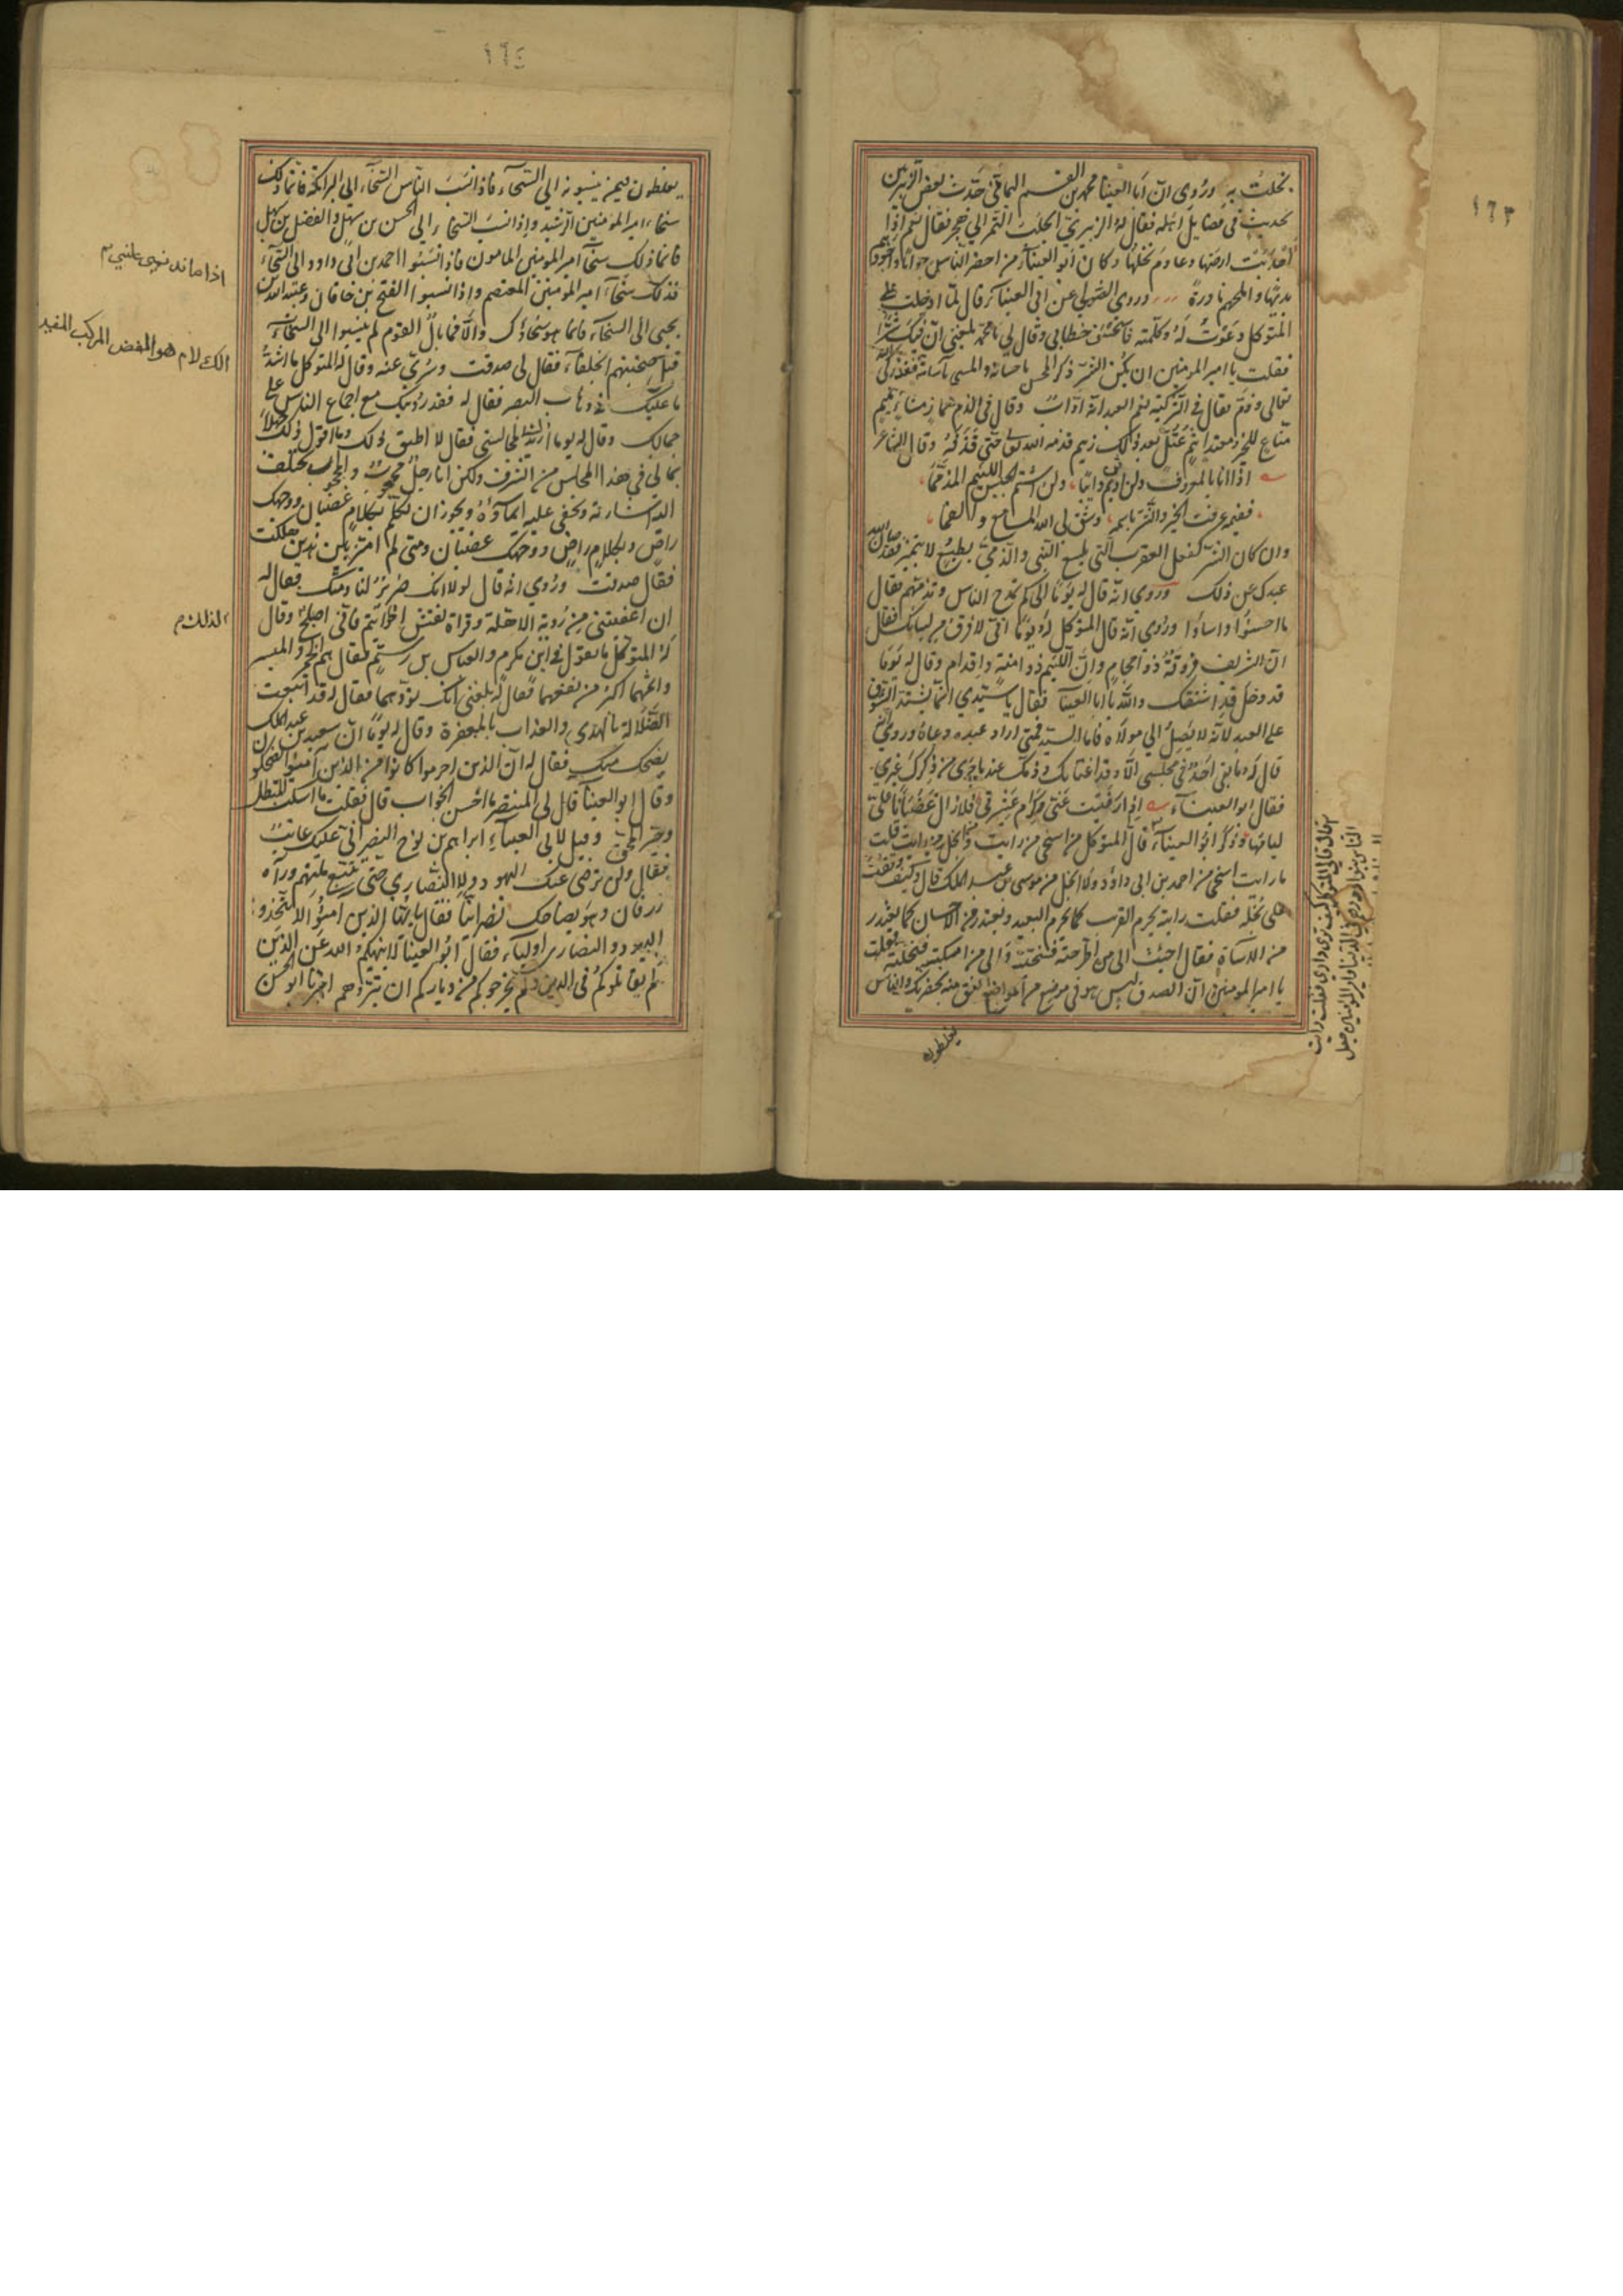 ١٦٣
بخلت به وروى ان ابا العيناء محمد بن القسم اليمامي حدث بعض الزبيريين
بحديث في فضايل اهله فقال له الزبيري اتجلب التمر الي هجر فقال نعم اذا
اجدبت ارضها وعاوم نخلها وكان ابو العيناء من احضر الناس جوابا واجودهم
بديهة واملحهم نادرة وروى الصولي عن ابي العيناء قال لما ادخلت علي
المتوكل دعوت له وكلمته فاستحسن خطابي وقال لي يا محمد بلغني ان فيك شرا
فقلت يا امير المومنين ان يكن الشر ذكر المحسن باحسانه والمسي باسائته فقد زكى الله
تعالى وذم فقال في التزكية نعم العبد انه اواب وقال في الذم هماز مشاء بنميم
مناع للخير معتد اثيم عتل بعد ذلك زنيم فذمه الله تعالى حتى قذفه وقال الشاعر
اذا انا بالمعروف لم اثن دائبا ولم اشتم الجبس اللئيم المذمما
ففيم عرفت الخير والشر باسمه وشق لي الله المسامع والفما
وان كان الشر كفعل العقرب التي تلسع النبي والذمي بطبع لا يتميز فقد صان الله
عبدك عن ذلك وروي انه قال له يوما الى كم تمدح الناس وتذمهم فقال
ما احسنوا واساؤا وروي انه قال المتوكل له يوما انني لا فرق من لسانك فقال
ان الشريف فروقة ذو احجام وان اللئيم ذو امنة واقدام وقال له يوما
وقد دخل قد اشتقتك والله يا ابا العينا فقال يا سيدي انما يشتد الشوق
على العبد لانه لا يصل الي مولاه فاما السيد فمتى اراد عبده دعاه وروي انه
قال له ما بقي احد في مجلسي الا وقد اغتابك وذمك عند ما جرى من ذكرك غيري
فقال ابو العيناء اذا رضيت عني كرام عشيرتي فلا زال غضبانا علي
ليامها وذكر ابو العيناء قال المتوكل من اسخي من رايت وابخل من رايت قلت
ما رايت اسخى من احمد بن ابي داود ولا ابخل من موسى بن عبد الملك قال وكيف وقفت
على بخله فقلت رايته يحرم القريب كما يحرم البعيد ويعتذر من الاحسان كما يعتذر
من الاساة فقال اجئت الى من اطرحته فسخيته والى من امسكته فبخلته فقلت
يا امير المومنين ان الصدق ليس هو في موضع من المواضع انفق منه بحضرتك والناس
يغلطون
١٦٤
يغلطون فيمن ينسبونه الي السخاء فاذا نسب الناس السخاء الي البرامكة فانما ذلك
سخاء امير المومنين الرشيد واذا نسب السخاء الي الحسن بن سهل والفضل بن سهل
فانما ذلك سخاء امير المومنين المامون فاذا نسبوا احمد بن ابي داود الى السخاء
فذلك سخاء امير المومنين المعتصم واذا نسبوا الفتح بن خاقان وعبيد الله بن
يحيى الى السخاء فانما هو سخاؤك والا فما بال القوم لم ينسبوا الى السخاء
قبل صحبتهم الخلفاء فقال لي صدقت وسري عنه وقال له المتوكل ما اشد
ما عليك في ذهاب البصر فقال له فقد رؤيتك مع اجماع الناس على
جمالك وقال له يوما اريدك لمجالستي فقال لا اطيق ذلك وما اقول ذلك جهلا
بما لي في هذا المجلس من الشرف ولكن انا رجل محجوب والمحجوب تختلف
اشارته ويخفى عليه ايماؤه ويجوز ان تتكلم بكلام غضبان ووجهك
راض وبكلام راض ووجهك غضبان ومتى لم اميز بين هذين هلكت
فقال صدقت وروي انه قال لولا انك ضرير لنادمتك فقال له
ان اعفيتني من رؤية الاهلة وقراة نقش الخواتيم فاني اصلح وقال
له المتوكل ما تقول في ابن مكرم والعباس بن رستم فقال هم الخمر والميسر
واثمهما اكثر من نفعهما فقال له بلغني انك تودهما فقال لقد ابتعت
الضلالة بالهدى والعذاب بالمغفرة وقال له يوما ان سعيد بن عبد الملك
يضحك منك فقال له ان الذين اجرموا كانوا من الذين آمنوا يضحكون
وقال ابو العينا قال لي المنتصر ما احسن الجواب قال فقلت ما اسكت المبطل
وحير المحق وقيل لابي العيناء ابراهيم بن نوح النصراني عليك عاتب
فقال ولن ترضى عنك اليهود ولا النصاري حتى تتبع ملتهم ورآه
زرقان وهو يضاحك نصرانيا فقال يا ايها الذين آمنوا لا تتخذوا
اليهود والنصارى اولياء فقال ابو العينا لا ينهيكم الله عن الذين
لم يقاتلوكم في الدين ولم يخرجوكم من دياركم ان تبروهم اخبرنا ابو الحسن
الكلام هو اللفظ المركب المفيد
لذلك م